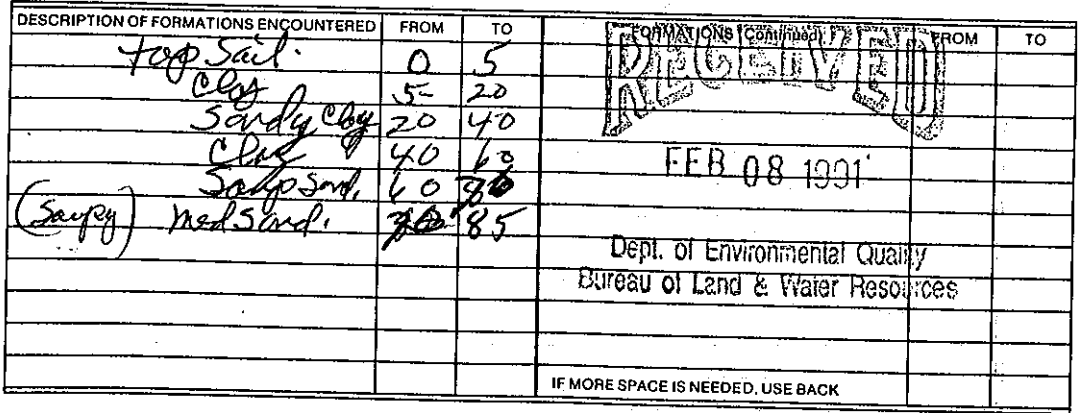 DESCRIPTION OF FORMATIONS ENCOUNTERED FROM TO FORMATIONS (Continued) FROM TO
RECEIVED
top Soil. 0 5
Clay 5 20
Sandy Clay 20 40
Clay 40 60
Soup Sand. 60
(Soupy) med Sand. 85
FEB 08 1991
Dept. of Environmental Quality
Bureau of Land & Water Resources
IF MORE SPACE IS NEEDED, USE BACK